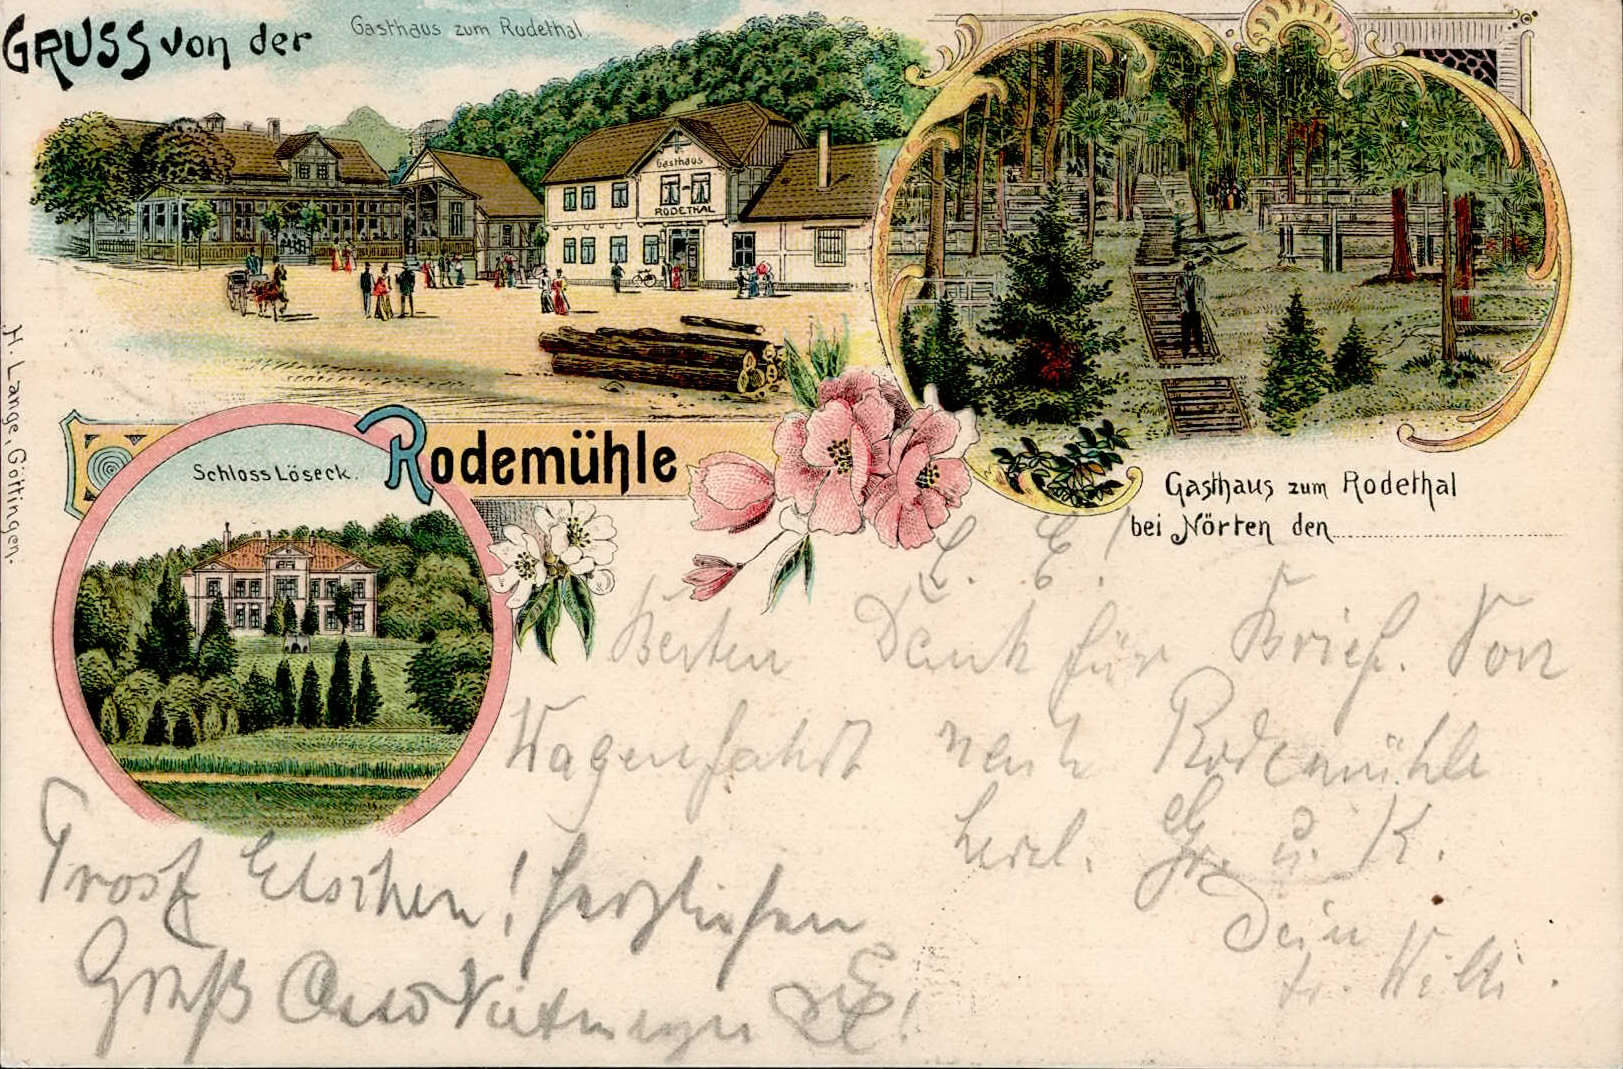 GRUSS von der
Gasthaus zum Rodethal.
Gasthaus
RODETHAL
H. Lange, Göttingen.
Schloss Löseck.
Rodemühle
Gasthaus zum Rodethal
bei Nörten den
L. E.!
Besten Dank für Brief. Von
Wagenfahrt nach Rodemühle
herzl. Gr. u. K.
Dein
tr. Willi.
Prost Elschen! Herzlichen
Gruß Otto